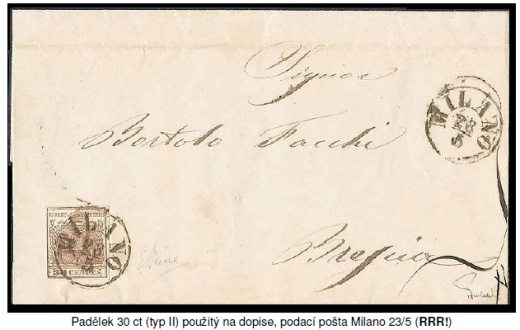 Signor
MILANO
23
5
Bortolo Facchi
MILANO
Brescia
Padělek 30 ct (typ II) použitý na dopise, podací pošta Milano 23/5 (RRR!)